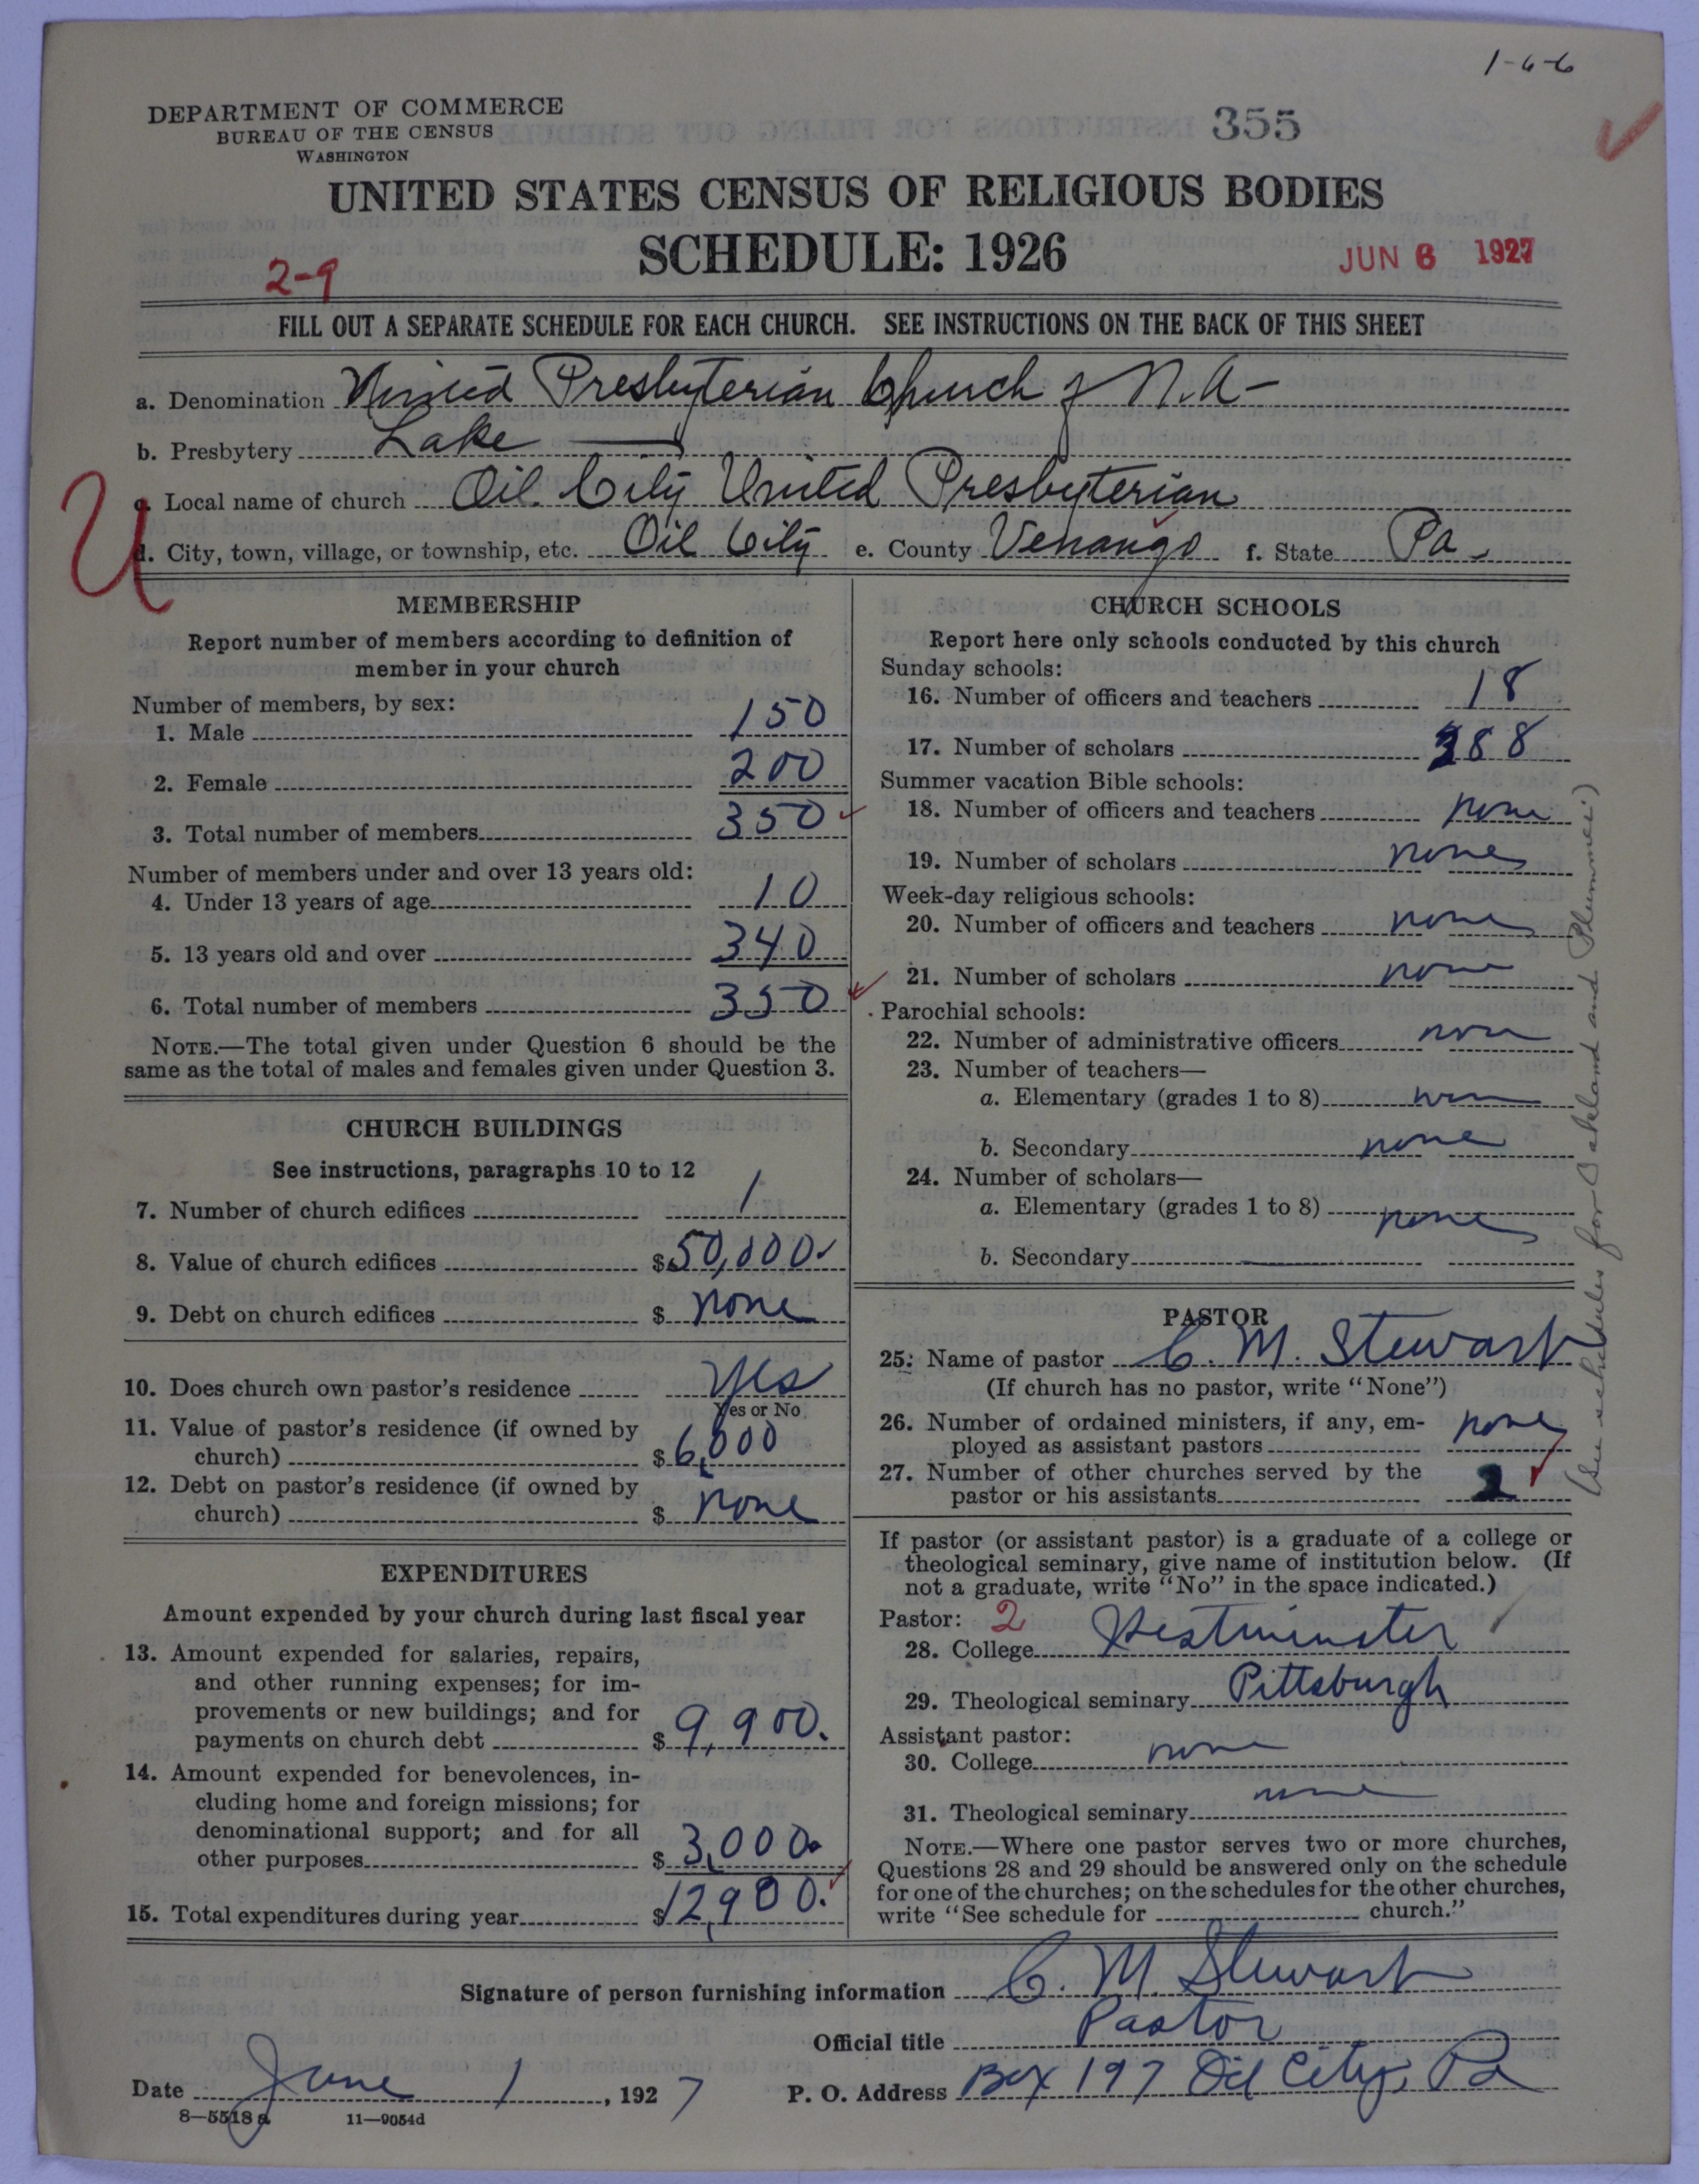 1-6-6
DEPARTMENT OF COMMERCE
BUREAU OF THE CENSUS
WASHINGTON
355
UNITED STATES CENSUS OF RELIGIOUS BODIES
SCHEDULE: 1926
2-9
JUN 6 1927
FILL OUT A SEPARATE SCHEDULE FOR EACH CHURCH. SEE INSTRUCTIONS ON THE BACK OF THIS SHEET
a. Denomination United Presbyterian Church of N.A-
b. Presbytery Lake
c. Local name of church Oil City United Presbyterian
U
d. City, town, village, or township, etc. Oil City e. County Venango f. State Pa.
MEMBERSHIP
Report number of members according to definition of
member in your church
Number of members, by sex:
1. Male 150
2. Female 200
3. Total number of members 350
Number of members under and over 13 years old:
4. Under 13 years of age 10
5. 13 years old and over 340
6. Total number of members 350
NOTE.—The total given under Question 6 should be the
same as the total of males and females given under Question 3.
CHURCH BUILDINGS
See instructions, paragraphs 10 to 12
7. Number of church edifices 1
8. Value of church edifices $50,000.
9. Debt on church edifices $ none
10. Does church own pastor's residence Yes
Yes or No
11. Value of pastor's residence (if owned by
church) $6,000
12. Debt on pastor's residence (if owned by
church) $ none
EXPENDITURES
Amount expended by your church during last fiscal year
13. Amount expended for salaries, repairs,
and other running expenses; for im-
provements or new buildings; and for
payments on church debt $9,900.
14. Amount expended for benevolences, in-
cluding home and foreign missions; for
denominational support; and for all
other purposes $3,000.
15. Total expenditures during year $12,900.
CHURCH SCHOOLS
Report here only schools conducted by this church
Sunday schools:
16. Number of officers and teachers 18
17. Number of scholars 388
Summer vacation Bible schools:
18. Number of officers and teachers none
19. Number of scholars none
Week-day religious schools:
20. Number of officers and teachers none
21. Number of scholars none
Parochial schools:
22. Number of administrative officers none
23. Number of teachers—
a. Elementary (grades 1 to 8) none
b. Secondary none
24. Number of scholars—
a. Elementary (grades 1 to 8) none
b. Secondary
PASTOR
25. Name of pastor C. M. Stewart
(If church has no pastor, write "None")
26. Number of ordained ministers, if any, em-
ployed as assistant pastors none
27. Number of other churches served by the
pastor or his assistants 2
If pastor (or assistant pastor) is a graduate of a college or
theological seminary, give name of institution below. (If
not a graduate, write "No" in the space indicated.)
Pastor: 2
28. College Westminster
29. Theological seminary Pittsburgh
Assistant pastor:
30. College none
31. Theological seminary none
NOTE.—Where one pastor serves two or more churches,
Questions 28 and 29 should be answered only on the schedule
for one of the churches; on the schedules for the other churches,
write "See schedule for church."
(See schedules for Oakland and Plummer)
Signature of person furnishing information C. M. Stewart
Official title Pastor
Date June 1, 1927 P. O. Address Box 197 Oil City, Pa
8—5518a 11—9054d